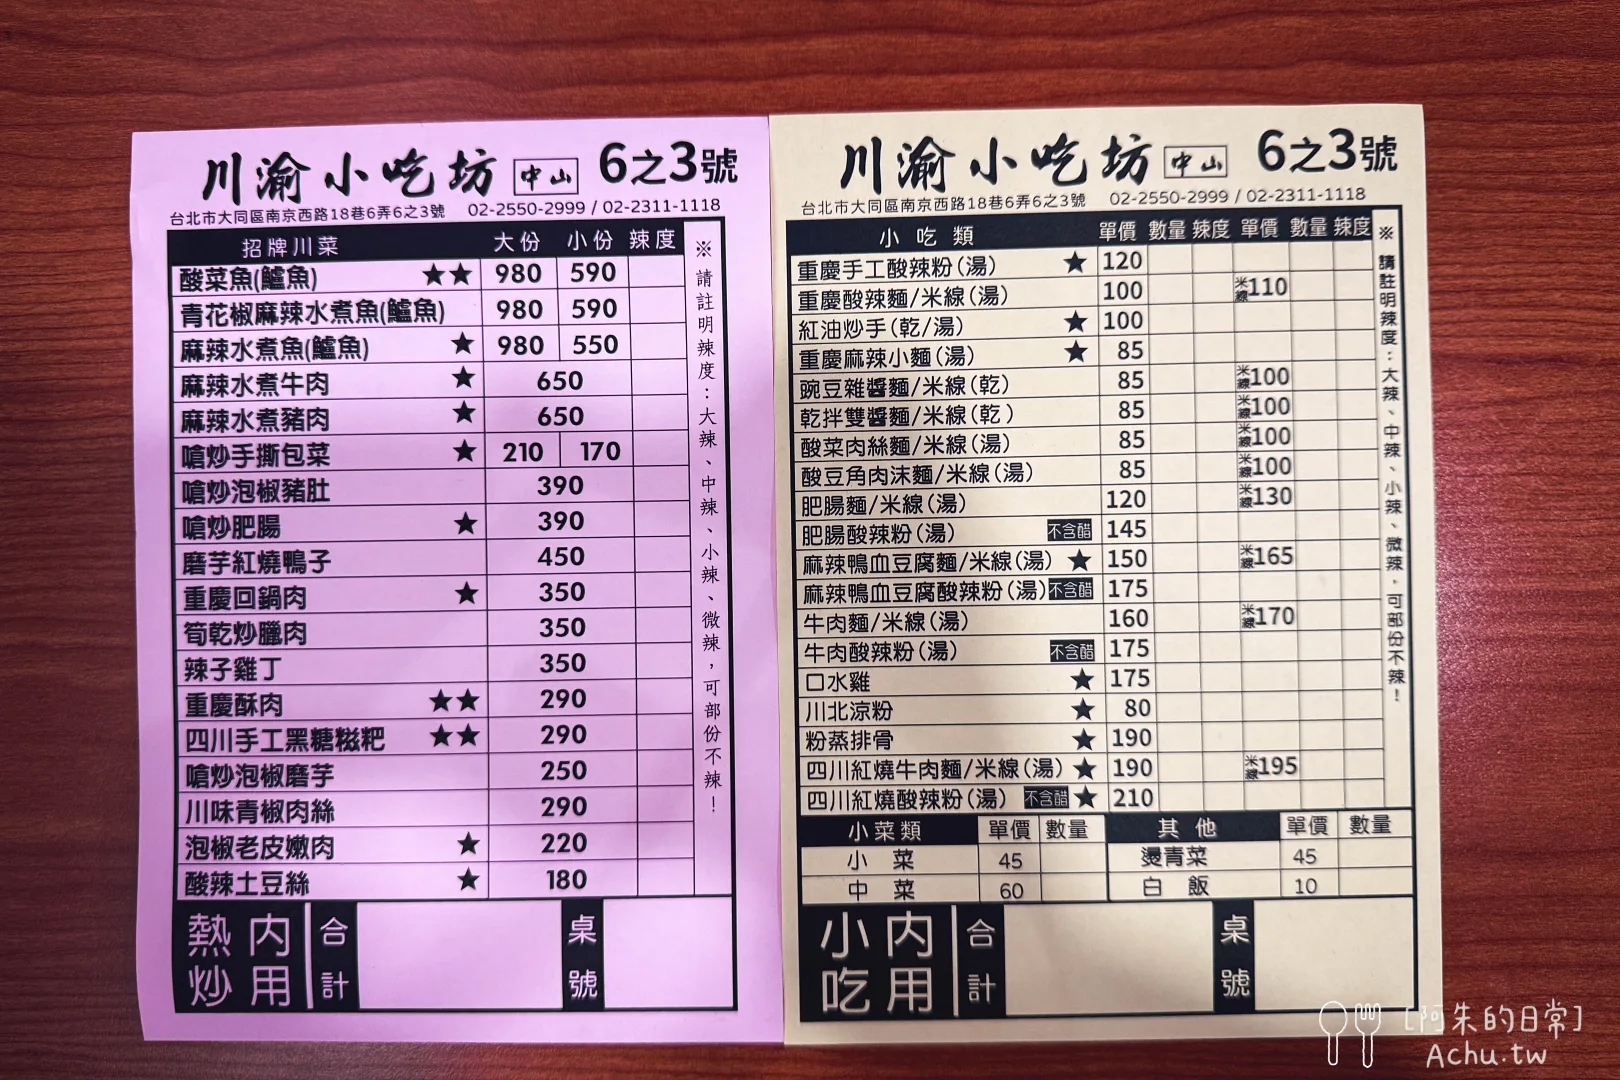 川渝小吃坊 中山 6之3號
台北市大同區南京西路18巷6弄6之3號 02-2550-2999 / 02-2311-1118
招牌川菜 大份 小份 辣度
酸菜魚(鱸魚) ★★ 980 590
青花椒麻辣水煮魚(鱸魚) 980 590
麻辣水煮魚(鱸魚) ★ 980 550
麻辣水煮牛肉 ★ 650
麻辣水煮豬肉 ★ 650
嗆炒手撕包菜 ★ 210 170
嗆炒泡椒豬肚 390
嗆炒肥腸 ★ 390
磨芋紅燒鴨子 450
重慶回鍋肉 ★ 350
筍乾炒臘肉 350
辣子雞丁 350
重慶酥肉 ★★ 290
四川手工黑糖糍粑 ★★ 290
嗆炒泡椒磨芋 250
川味青椒肉絲 290
泡椒老皮嫩肉 ★ 220
酸辣土豆絲 ★ 180
※請註明辣度：大辣、中辣、小辣、微辣，可部份不辣！
熱炒 內用 合計 桌號
川渝小吃坊 中山 6之3號
台北市大同區南京西路18巷6弄6之3號 02-2550-2999 / 02-2311-1118
小吃類 單價 數量 辣度 單價 數量 辣度
重慶手工酸辣粉(湯) ★ 120
重慶酸辣麵/米線(湯) 100 米線110
紅油炒手(乾/湯) ★ 100
重慶麻辣小麵(湯) ★ 85
豌豆雜醬麵/米線(乾) 85 米線100
乾拌雙醬麵/米線(乾) 85 米線100
酸菜肉絲麵/米線(湯) 85 米線100
酸豆角肉沫麵/米線(湯) 85 米線100
肥腸麵/米線(湯) 120 米線130
肥腸酸辣粉(湯) 不含醋 145
麻辣鴨血豆腐麵/米線(湯) ★ 150 米線165
麻辣鴨血豆腐酸辣粉(湯) 不含醋 175
牛肉麵/米線(湯) 160 米線170
牛肉酸辣粉(湯) 不含醋 175
口水雞 ★ 175
川北涼粉 ★ 80
粉蒸排骨 ★ 190
四川紅燒牛肉麵/米線(湯) ★ 190 米線195
四川紅燒酸辣粉(湯) 不含醋 ★ 210
※請註明辣度：大辣、中辣、小辣、微辣，可部份不辣！
小菜類 單價 數量 其他 單價 數量
小菜 45 燙青菜 45
中菜 60 白飯 10
小吃 內用 合計 桌號
[阿朱的日常]
Achu.tw